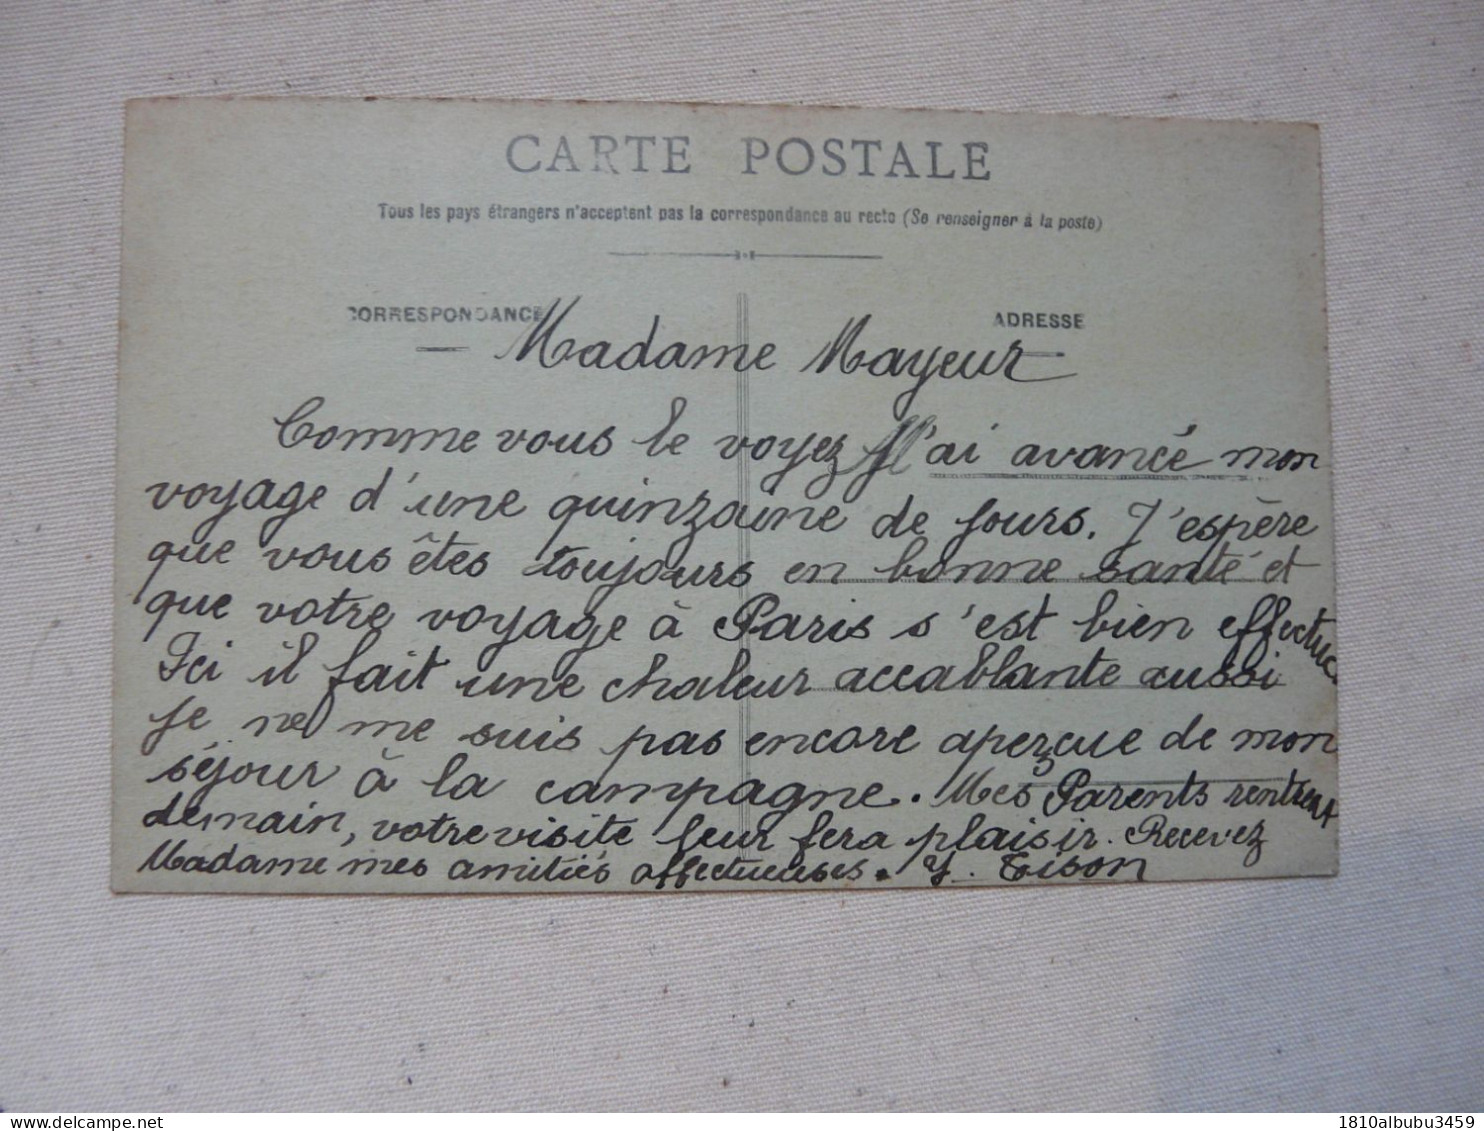 CARTE POSTALE
Tous les pays étrangers n'acceptent pas la correspondance au recto (Se renseigner à la poste)
CORRESPONDANCE
ADRESSE
Madame Mayeur
Comme vous le voyez j'ai avancé mon
voyage d'une quinzaine de jours. J'espère
que vous êtes toujours en bonne santé et
que votre voyage à Paris s'est bien effectué
Ici il fait une chaleur accablante aussi
je ne me suis pas encore aperçue de mon
séjour à la campagne. Mes Parents rentrent
demain, votre visite leur fera plaisir. Recevez
Madame mes amitiés affectueuses. Y. Tison
1810albubu3459